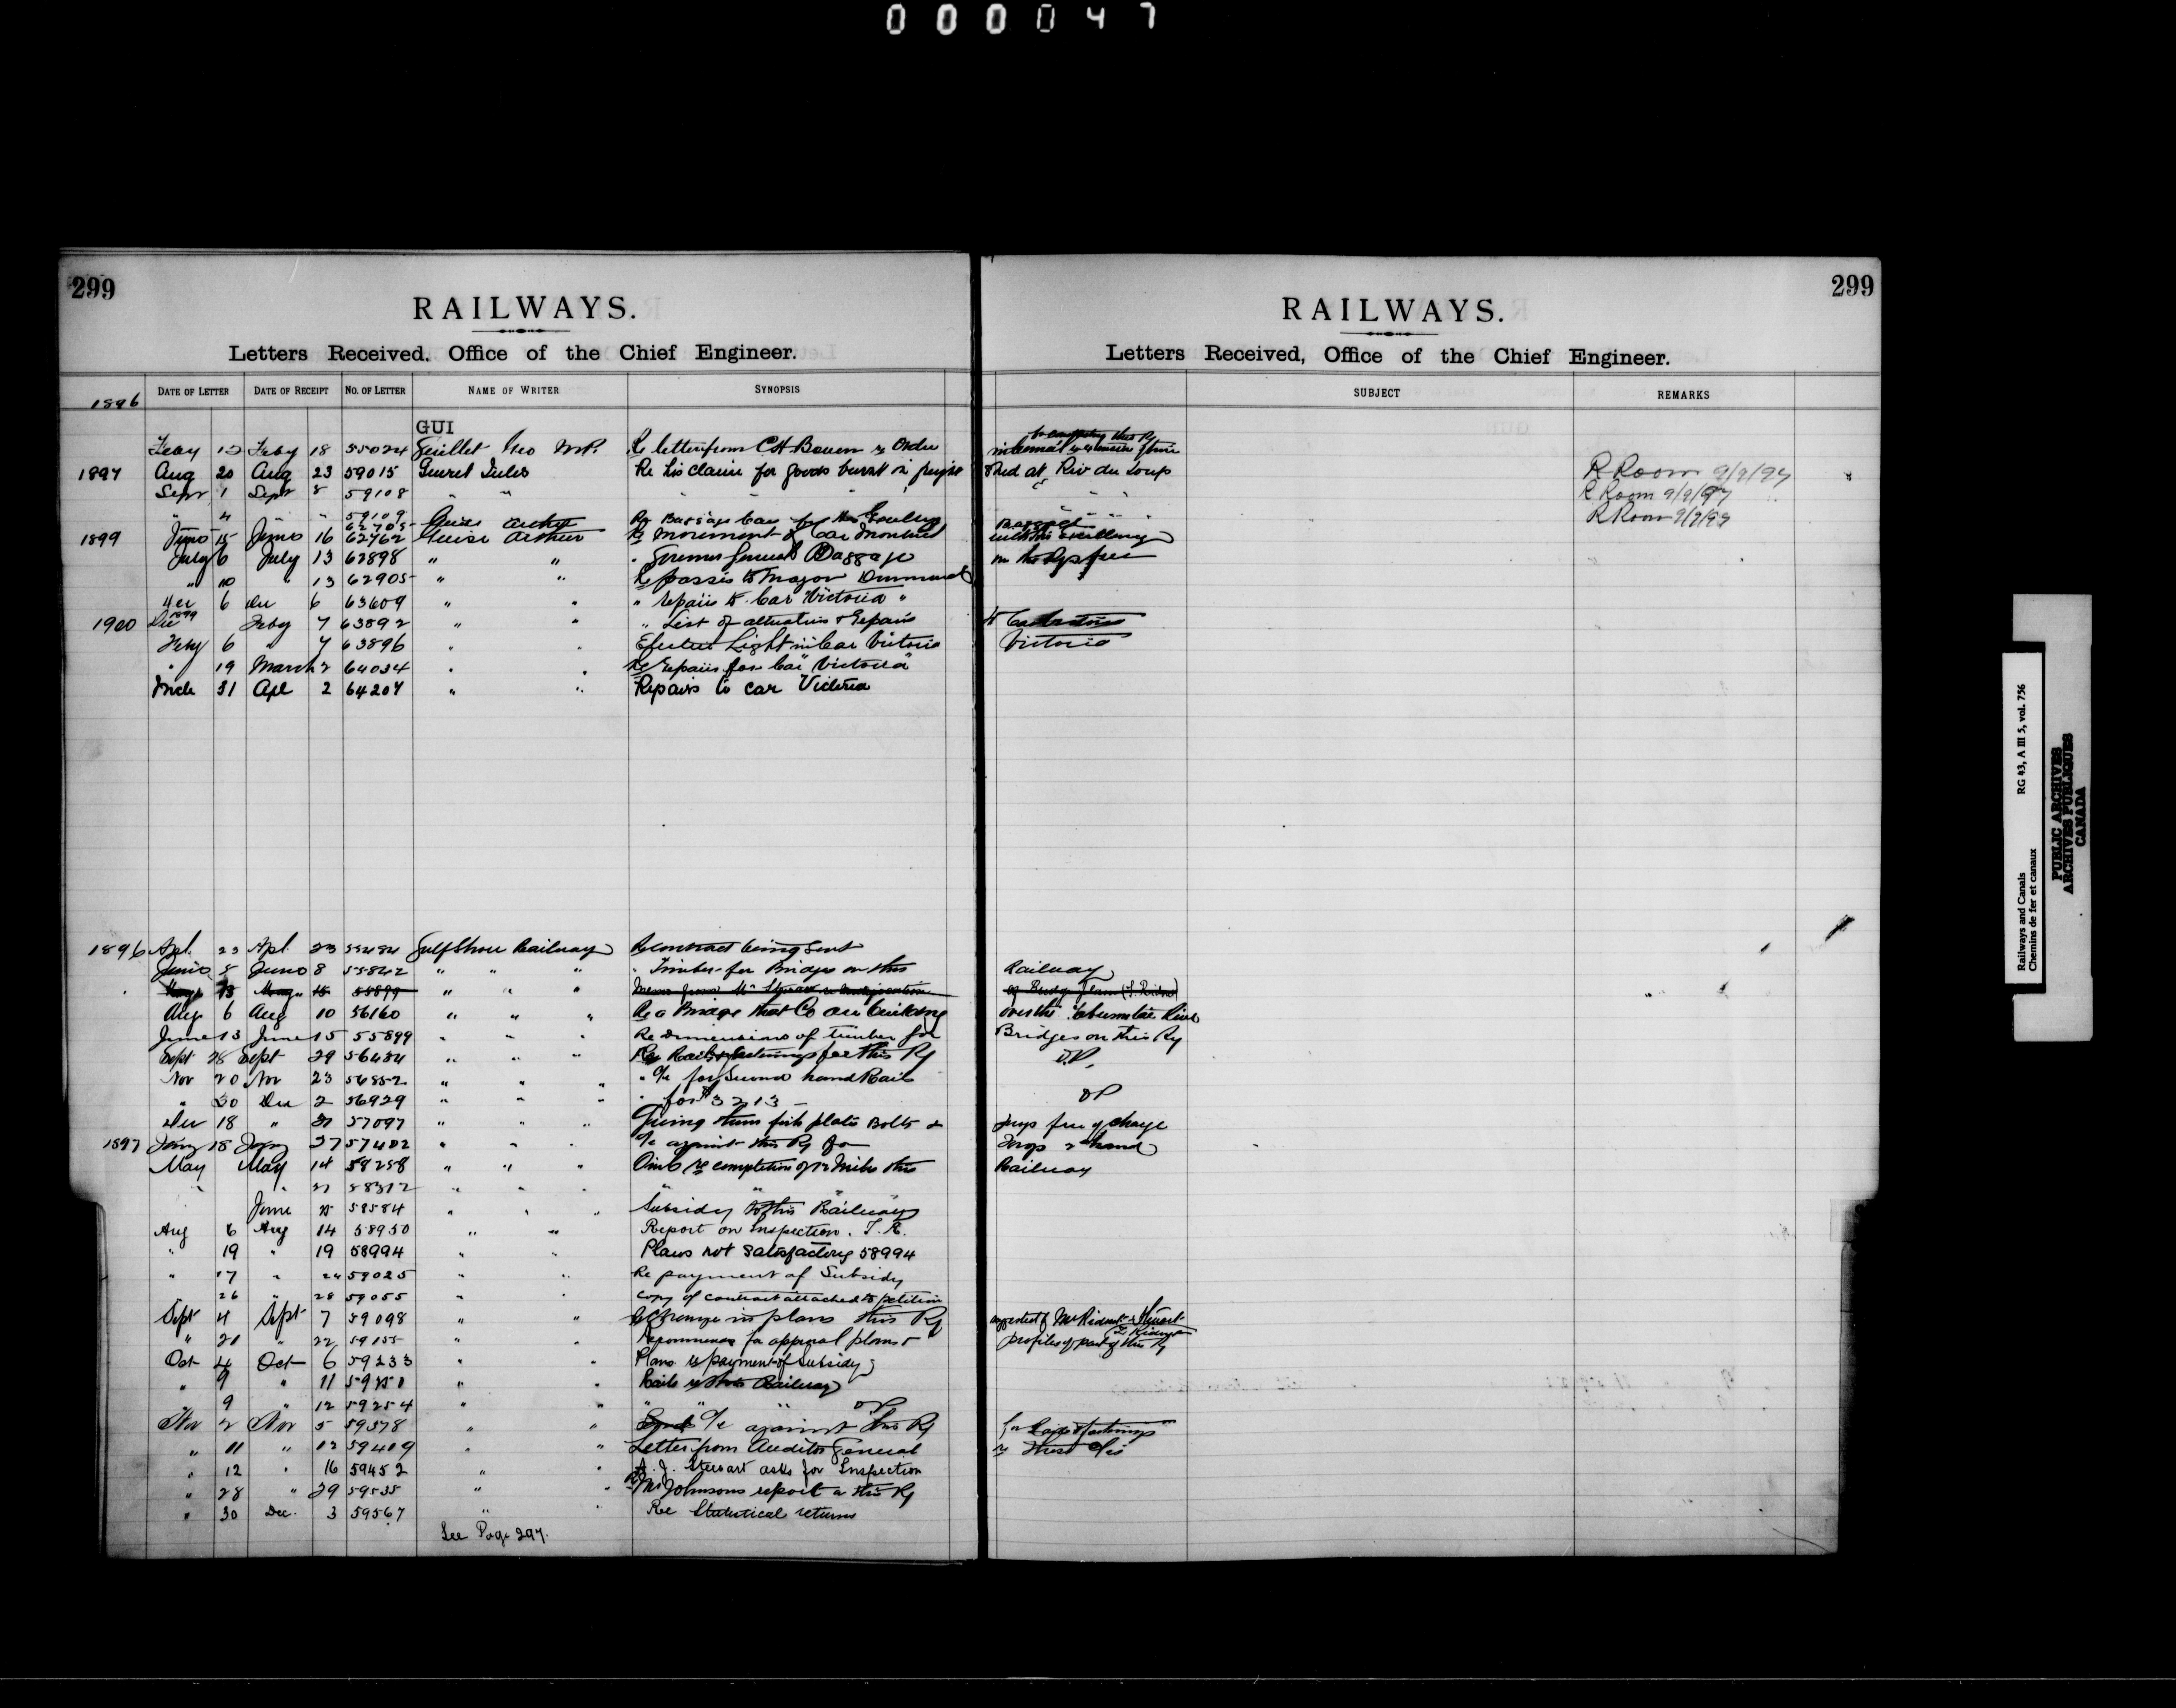 000047
299
RAILWAYS.
Letters Received, Office of the Chief Engineer.
1896 DATE OF LETTER DATE OF RECEIPT No. OF LETTER NAME OF WRITER SYNOPSIS
GUI
Feby Feby 18 55024 Guillet Geo M.P. Re letter from C H Bowen re Order
1897 Aug 20 Aug 23 59015 Gueret Jules Re his claim for goods burnt in freight
Sept 1 Sept 8 59108 " "
" 4 " " 59109
62705 Guise Arthur Re Baggage Car for His Excellency
1899 June 15 June 16 62762 Guise Arthur Re Movement of Car Montreal
July 6 July 13 62898 " " " General Baggage
" 10 " 13 62905 " " Re passes to Major Drummond
Dec 6 Dec 6 63609 " " " repairs to Car Victoria "
1900 Dec 1899 Feby 7 63892 " " " List of alterations & Repairs
Feby 6 " 7 63896 " " Electric Light in Car Victoria
" 19 March 2 64034 " " Re Repairs for Car "Victoria"
Mch 31 Apl 2 64207 " " Repairs to car Victoria
1896 Apl. 23 Apl. 23 Gulf Shore Railway Re contract being sent
June 5 June 8 55842 " " " " Timber for Bridges on this
May 13 May 15 55899 " " " Memo from Mr Stewart
Aug 6 Aug 10 56160 " " " Re a Bridge that Co are building
June 13 June 15 55899 " " " Re dimensions of timber for
Sept 28 Sept 29 56484 " " " Re Rails & fastenings for this Ry
Nov 20 Nov 23 56852 " " " " a/c for Second hand Rails
" 30 Dec 2 56929 " " " " for $3213
Dec 18 " 21 57097 " " " Giving them fish plates Bolts &
1897 Jany 18 Jany 27 57402 " " " a/c against this Ry for
May May 14 58258 " " " Oinc re completion of 12 Miles this
" " 21 58312 " " " " " "
June 15 58584 " " " Subsidy to this Railway
Aug 6 Aug 14 58950 " " Report on Inspection. T. R.
" 19 " 19 58994 " " Plans not satisfactory 58994
" 17 " 24 59025 " " Re payment of Subsidy
26 " 28 59055 " " Copy of contract attached to petition
Sept 4 Sept 7 59098 " " Re Change in plans this Ry
" 20 " 22 59155 " " Recommends for approval plans &
Oct 4 Oct 6 59233 " " Plans re payment of Subsidy
" 9 " 11 " " Rails re this Railway
" 9 " 12 59254 " " " " do
Nov 2 Nov 5 59378 " " a/c against this Ry
" 11 " 12 59409 " " Letter from Auditor General
" 12 " 16 59452 " " A. J. Stewart asks for Inspection
" 28 " 29 59535 " " Re Mr Johnsons report on this Ry
" 30 Dec. 3 59567 " " Re Statistical returns
See Page 297.
299
RAILWAYS.
Letters Received, Office of the Chief Engineer.
SUBJECT REMARKS
Shed at Riv du Loup R Room 9/9/97
" " " R Room 9/9/97
" " " R Room 9/9/97
with His Excellency
Victoria
Railway
of Bridge
over the River
Bridges on this Ry
do
frogs free of charge
Frogs 2nd hand
Railway
suggested of Mr Ridout & Stewart
profiles of part of this Ry
for Rails & fastenings
re these a/cs
RG 43, A III 5, vol. 756
Railways and Canals
Chemins de fer et canaux
PUBLIC ARCHIVES
ARCHIVES PUBLIQUES
CANADA